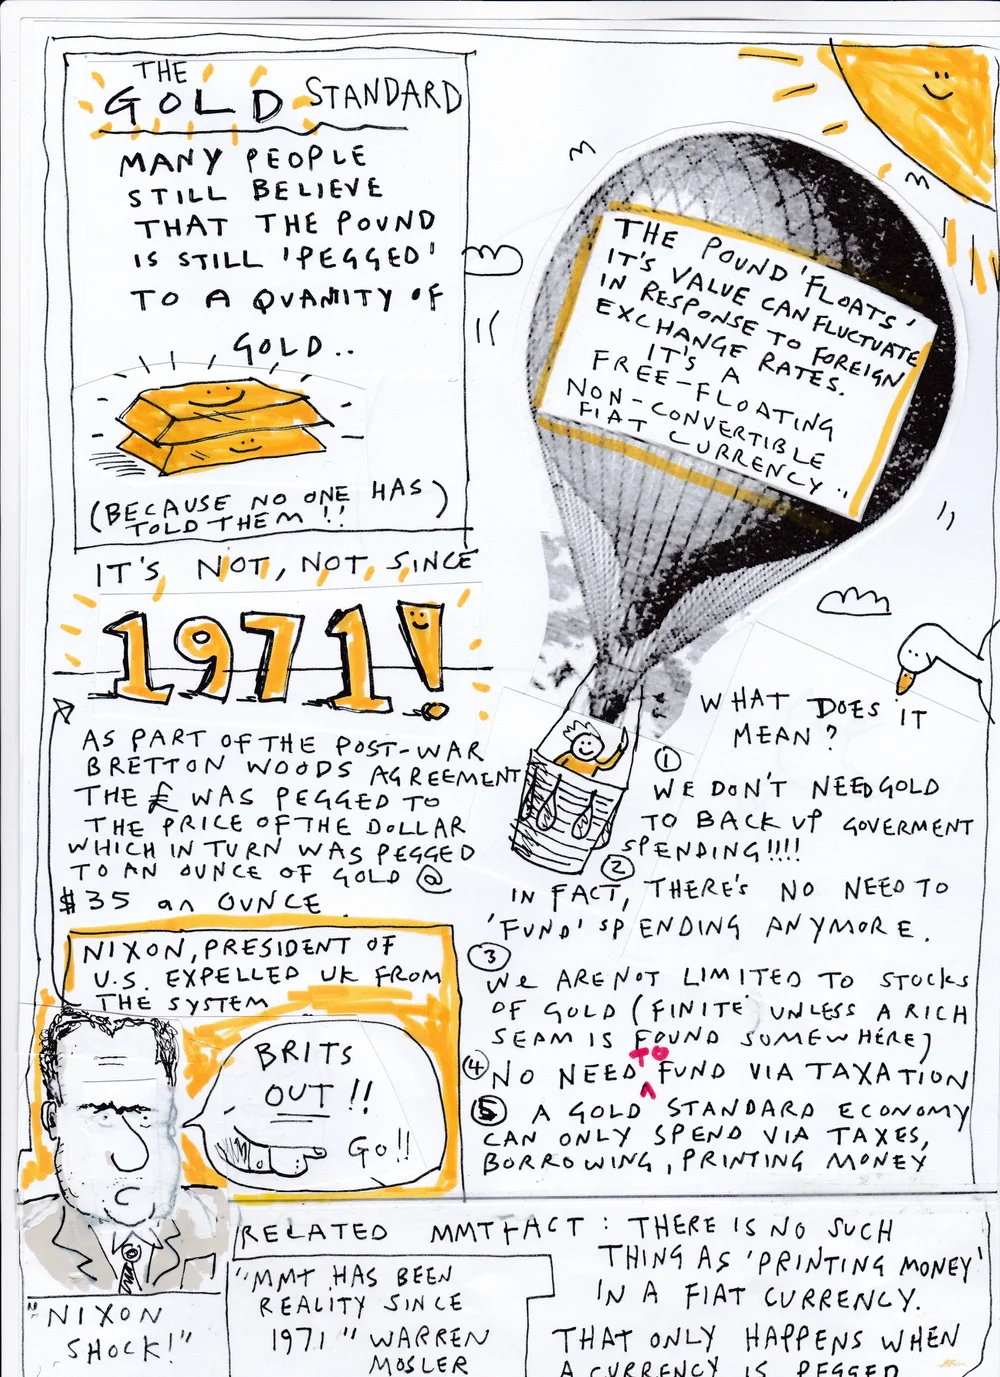 THE
GOLD STANDARD
MANY PEOPLE
STILL BELIEVE
THAT THE POUND
IS STILL 'PEGGED'
TO A QUANITY OF
GOLD..
(BECAUSE NO ONE HAS
TOLD THEM!!)
IT'S NOT, NOT, SINCE
1971!
AS PART OF THE POST-WAR
BRETTON WOODS AGREEMENT
THE £ WAS PEGGED TO
THE PRICE OF THE DOLLAR
WHICH IN TURN WAS PEGGED
TO AN OUNCE OF GOLD @
$35 an OUNCE.
NIXON, PRESIDENT OF
U.S. EXPELLED UK FROM
THE SYSTEM
BRITS
OUT!!
GO!!
"NIXON
SHOCK!"
THE POUND 'FLOATS'
IT'S VALUE CAN FLUCTUATE
IN RESPONSE TO FOREIGN
EXCHANGE RATES.
IT'S A
FREE-FLOATING
NON-CONVERTIBLE
FIAT CURRENCY..
WHAT DOES IT
MEAN?
①
WE DON'T NEED GOLD
TO BACK UP GOVERMENT
SPENDING!!!!
②
IN FACT, THERE'S NO NEED TO
'FUND' SPENDING ANYMORE.
③
WE ARE NOT LIMITED TO STOCKS
OF GOLD (FINITE UNLESS A RICH
SEAM IS FOUND SOMEWHERE)
④ NO NEED TO FUND VIA TAXATION
⑤ A GOLD STANDARD ECONOMY
CAN ONLY SPEND VIA TAXES,
BORROWING, PRINTING MONEY
RELATED MMT FACT: THERE IS NO SUCH
THING AS 'PRINTING MONEY'
IN A FIAT CURRENCY.
THAT ONLY HAPPENS WHEN
A CURRENCY IS PEGGED
"MMT HAS BEEN
REALITY SINCE
1971" WARREN
MOSLER